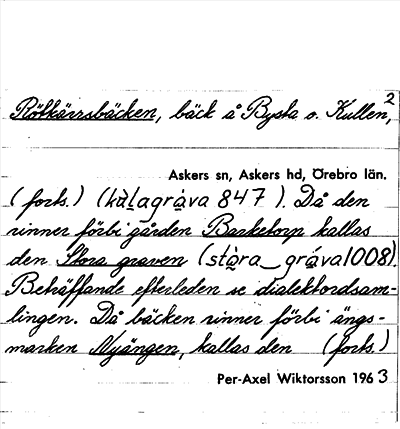 2
Rötkärrsbäcken, bäck å Bysta o. Kullen,
Askers sn, Askers hd, Örebro län.
(forts.) (kàl̠agrạva 847). Då den
rinner förbi gården Barketorp kallas
den Stora graven (stòra_gráva 1008).
Beträffande efterleden se dialektordsam-
lingen. Då bäcken rinner förbi ängs-
marken Nyängen, kallas den (forts.)
Per-Axel Wiktorsson 1963